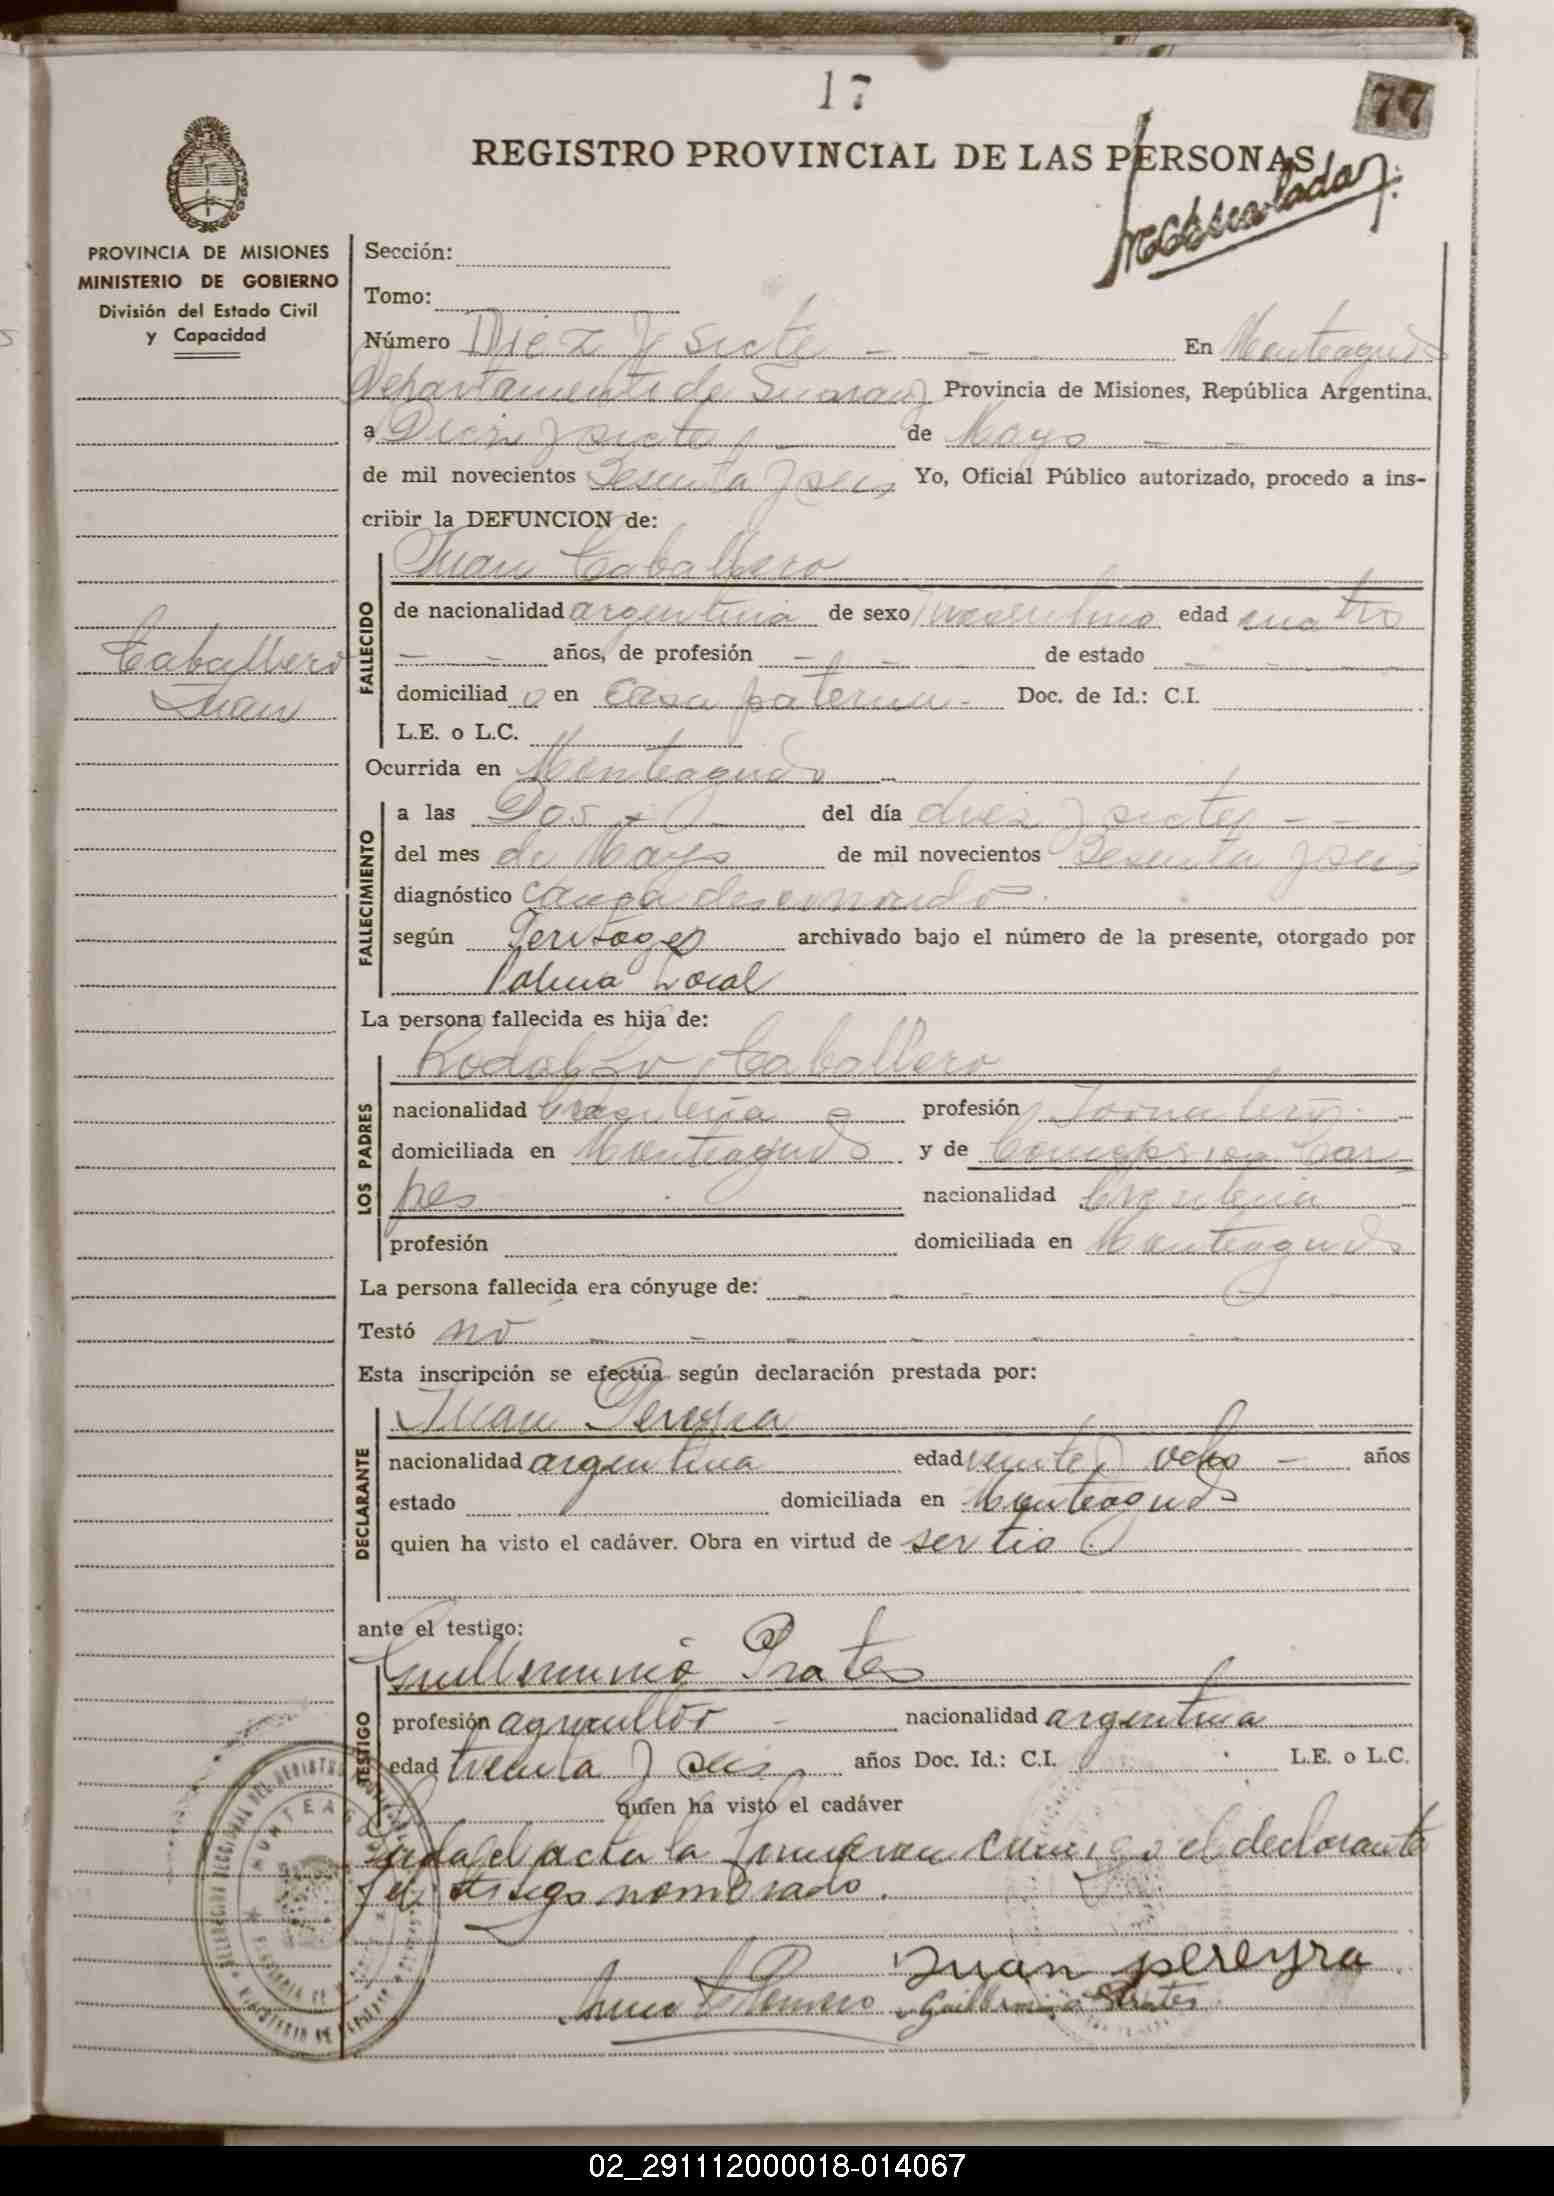 17
77
REGISTRO PROVINCIAL DE LAS PERSONAS
PROVINCIA DE MISIONES
MINISTERIO DE GOBIERNO
División del Estado Civil
y Capacidad
Caballero
Juan
Sección:
Tomo:
Número Diez y siete - - En Monteagudo
Departamento de Provincia de Misiones, República Argentina,
a Diez y siete - de Mayo - -
de mil novecientos Sesenta y seis Yo, Oficial Público autorizado, procedo a ins-
cribir la DEFUNCION de:
FALLECIDO
Juan Caballero
de nacionalidad argentina de sexo masculino edad cuatro
- - años, de profesión - - de estado - - -
domiciliad o en Casa paterna - Doc. de Id.: C.I.
L.E. o L.C.
Ocurrida en Monteagudo
FALLECIMIENTO
a las Dos del día diez y siete - -
del mes de Mayo de mil novecientos Sesenta y seis
diagnóstico causa
según archivado bajo el número de la presente, otorgado por
Local
La persona fallecida es hija de:
LOS PADRES
Rodolfo Caballero
nacionalidad profesión Jornalero
domiciliada en Monteagudo y de
nacionalidad
profesión domiciliada en Monteagudo
La persona fallecida era cónyuge de: - - -
Testó no - - - - -
Esta inscripción se efectúa según declaración prestada por:
DECLARANTE
Juan Pereyra
nacionalidad argentina edad veinte y ocho - años
estado domiciliada en Monteagudo
quien ha visto el cadáver. Obra en virtud de
ante el testigo:
TESTIGO
Guillermino Prates
profesión agricultor - nacionalidad argentina
edad treinta y seis años Doc. Id.: C.I. L.E. o L.C.
quien ha visto el cadáver
el acta la conmigo el declarante
nombrado.
Juan pereyra
Guillermino Prates
MONTEAGUDO
02_291112000018-014067